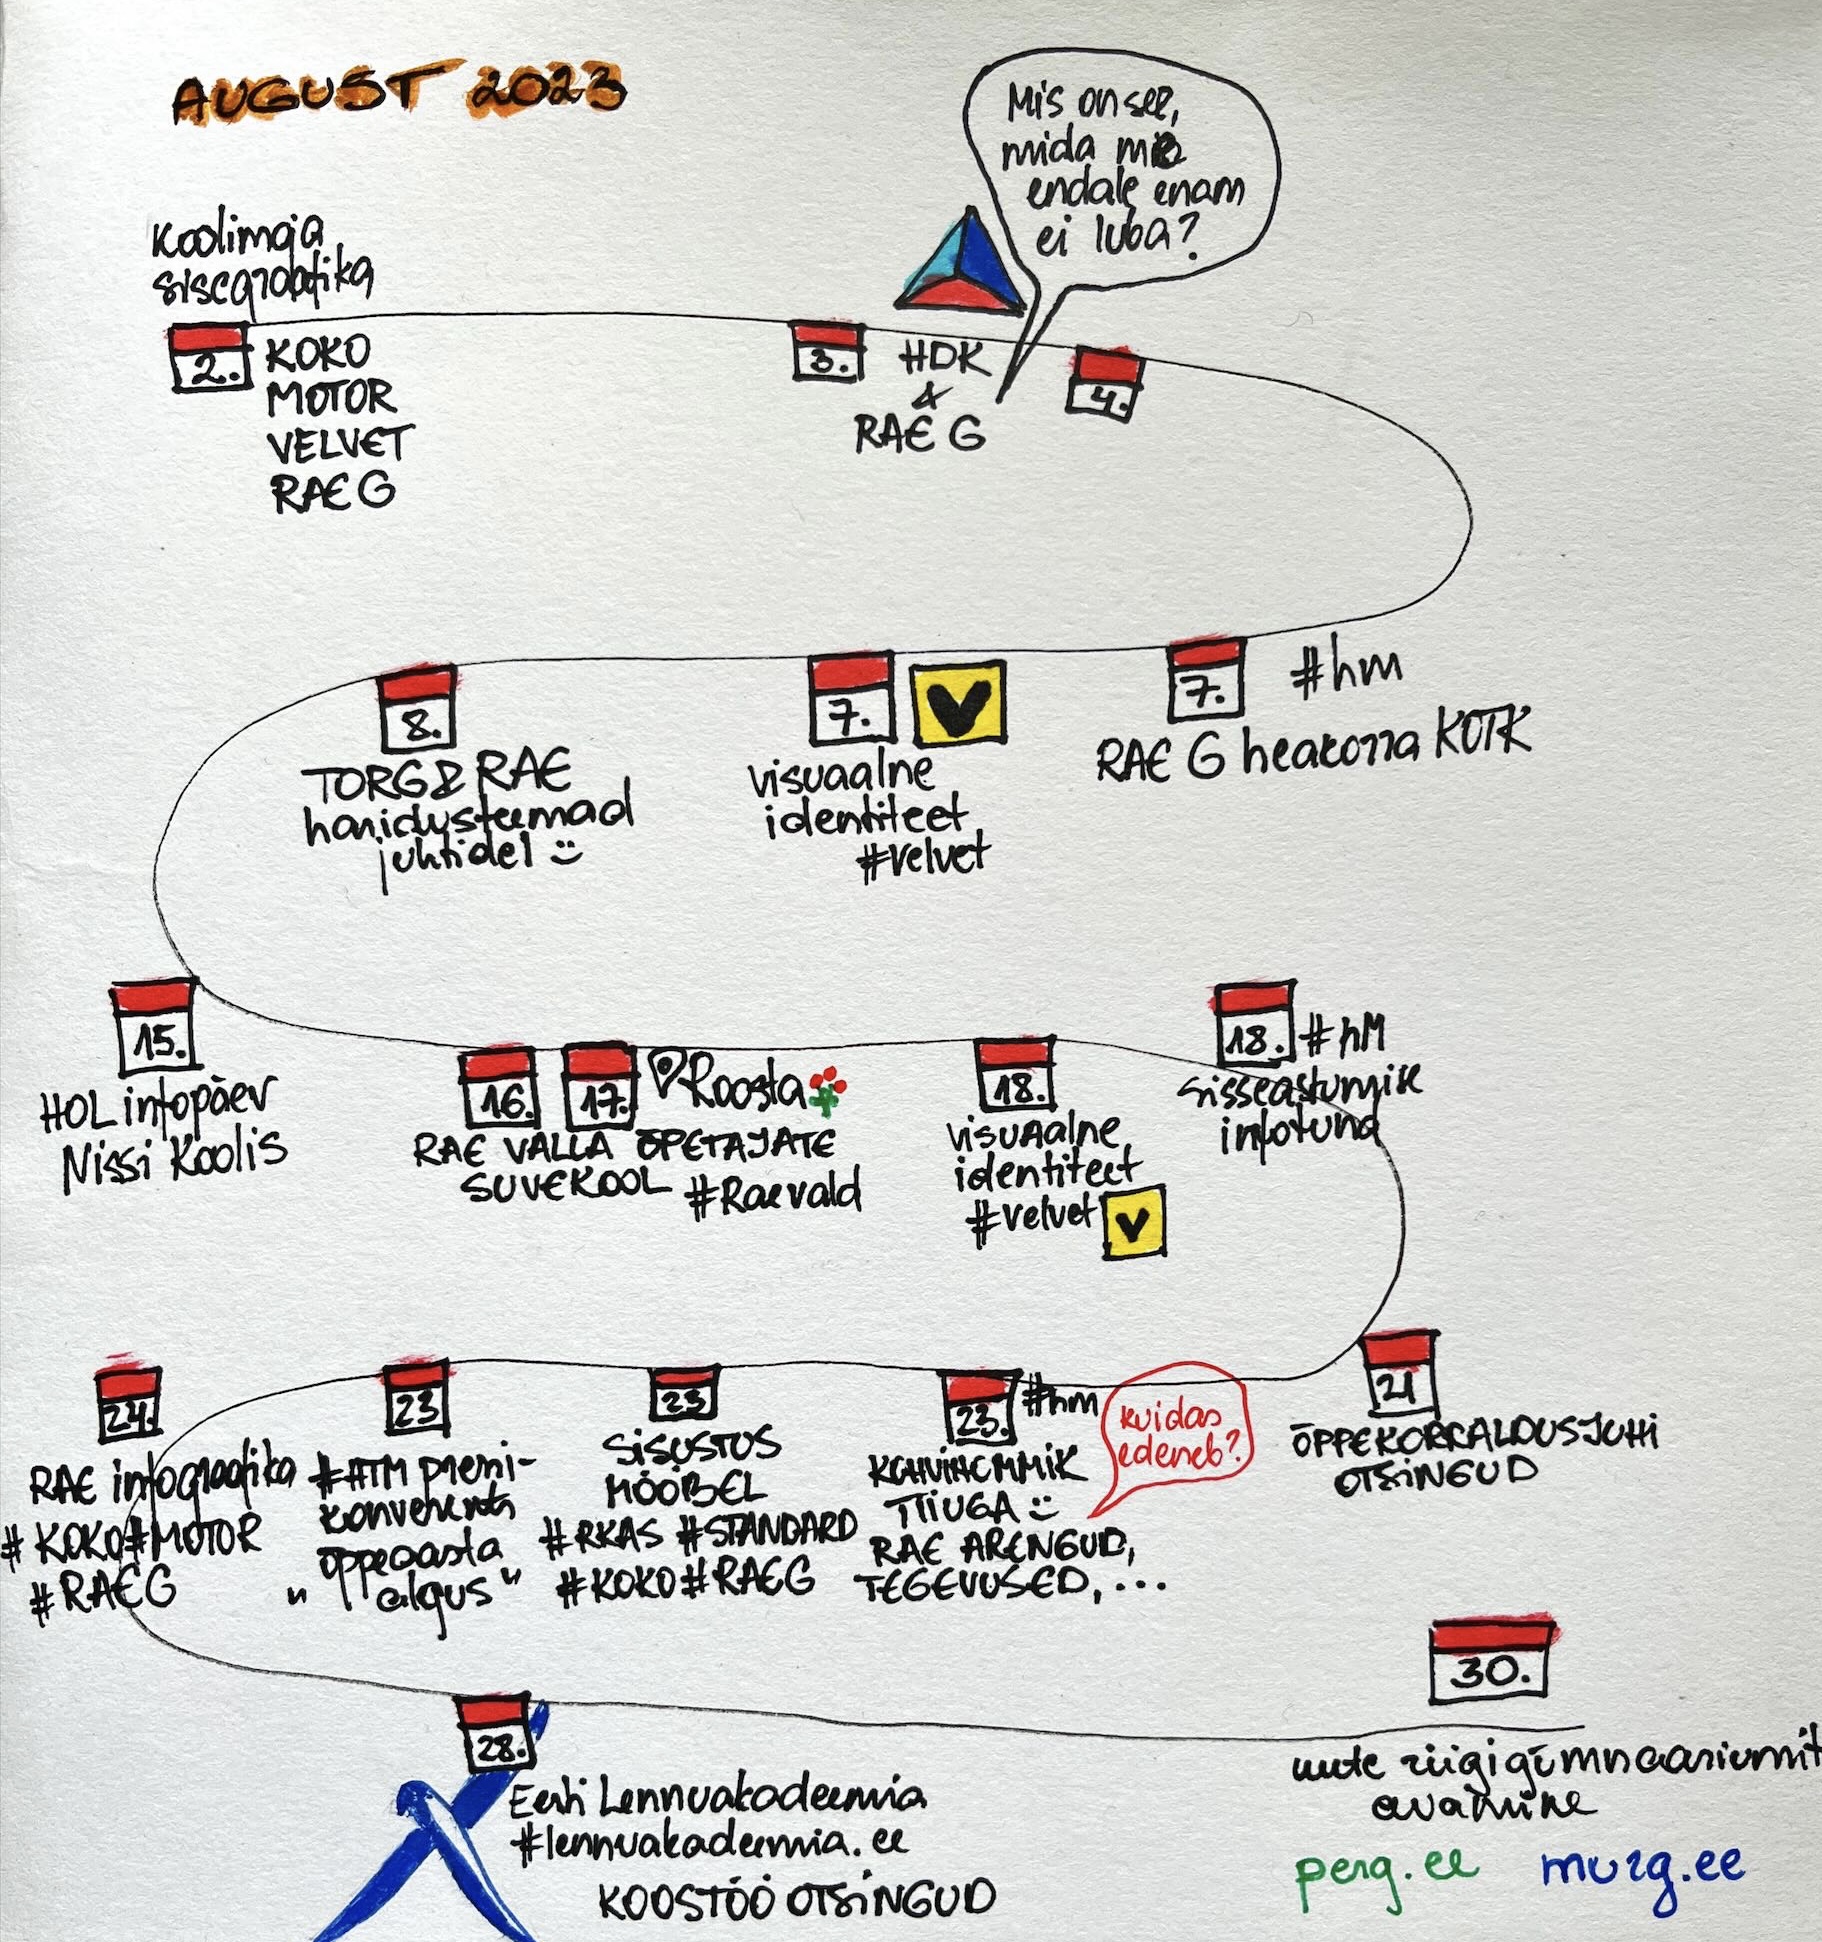 AUGUST 2023
Mis on see,
mida me
endale enam
ei luba?
Koolimaja
sisegraafika
2.
KOKO
MOTOR
VELVET
RAE G
3.
HDK
&
RAE G
4.
7.
#hm
RAE G heakorra KOTK
7.
V
visuaalne
identiteet
#velvet
8.
TORG & RAE
haridusteemad
juhtidel
15.
HOL infopäev
Nissi Koolis
16.
17.
Roosta
RAE VALLA ÕPETAJATE
SUVEKOOL #Raevald
18.
visuaalne
identiteet
#velvet
V
18.
#hM
sisseastumise
infotund
21
ÕPPEKORRALDUSJUHI
OTSINGUD
23.
#hm
kuidas
edeneb?
KOHVIHOMMIK
TIIUGA
RAE ARENGUD,
TEGEVUSED, ...
23
SISUSTUS
MÖÖBEL
#RKAS #STANDARD
#KOKO #RAEG
23
#HTM
konverents
õppeaasta
"algus"
24.
RAE infograafika
#KOKO #MOTOR
#RAEG
28.
Eesti Lennuakadeemia
#lennuakadeemia.ee
KOOSTÖÖ OTSINGUD
30.
uute riigigümnaasiumit
avamine
perg.ee murg.ee